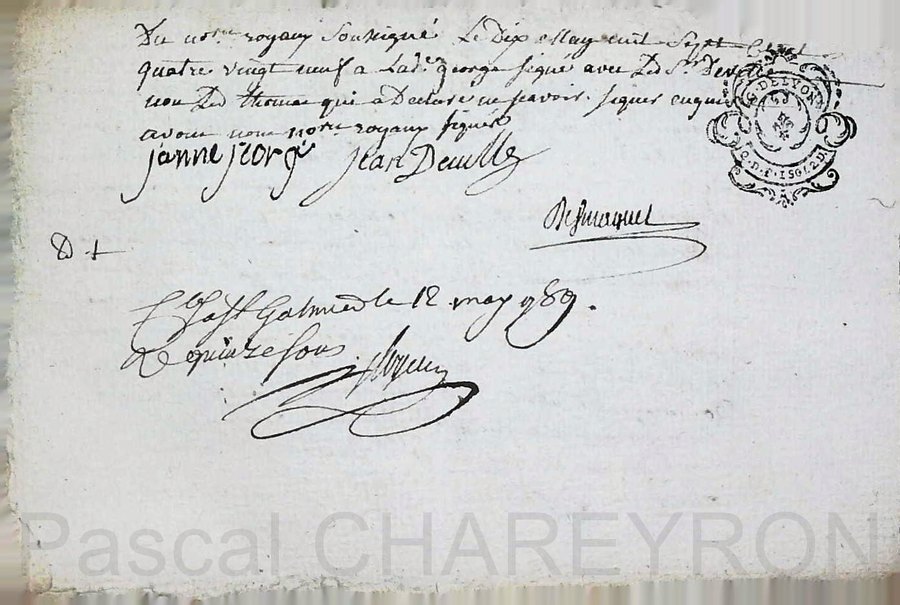 Du nore. royaux Soussigné Le Dix May mil Sept Cent
quatre vingt neuf a Lade. george signé avec Led. Sr. Deville
non Led thomas qui a Declaré ne scavoir signer enquis
avons nous nore. royaux signés
janne jeorge jean Deville
G. DE LYON
Clé a St Galmier le 12 may 1789.
R quinze sous
Pascal CHAREYRON